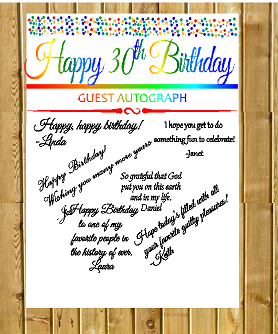 Happy 30th Birthday
GUEST AUTOGRAPH
Happy, happy birthday!
-Linda
I hope you get to do
something fun to celebrate!
-Janet
Happy Birthday!
Wishing you many more yours
So grateful that God
put you on this earth
and in my life,
Daniel
Happy Birthday
to one of my
favorite people in
the history of ever.
Laura
Hope today's filled with all
your favorite guilty pleasures!
Keith